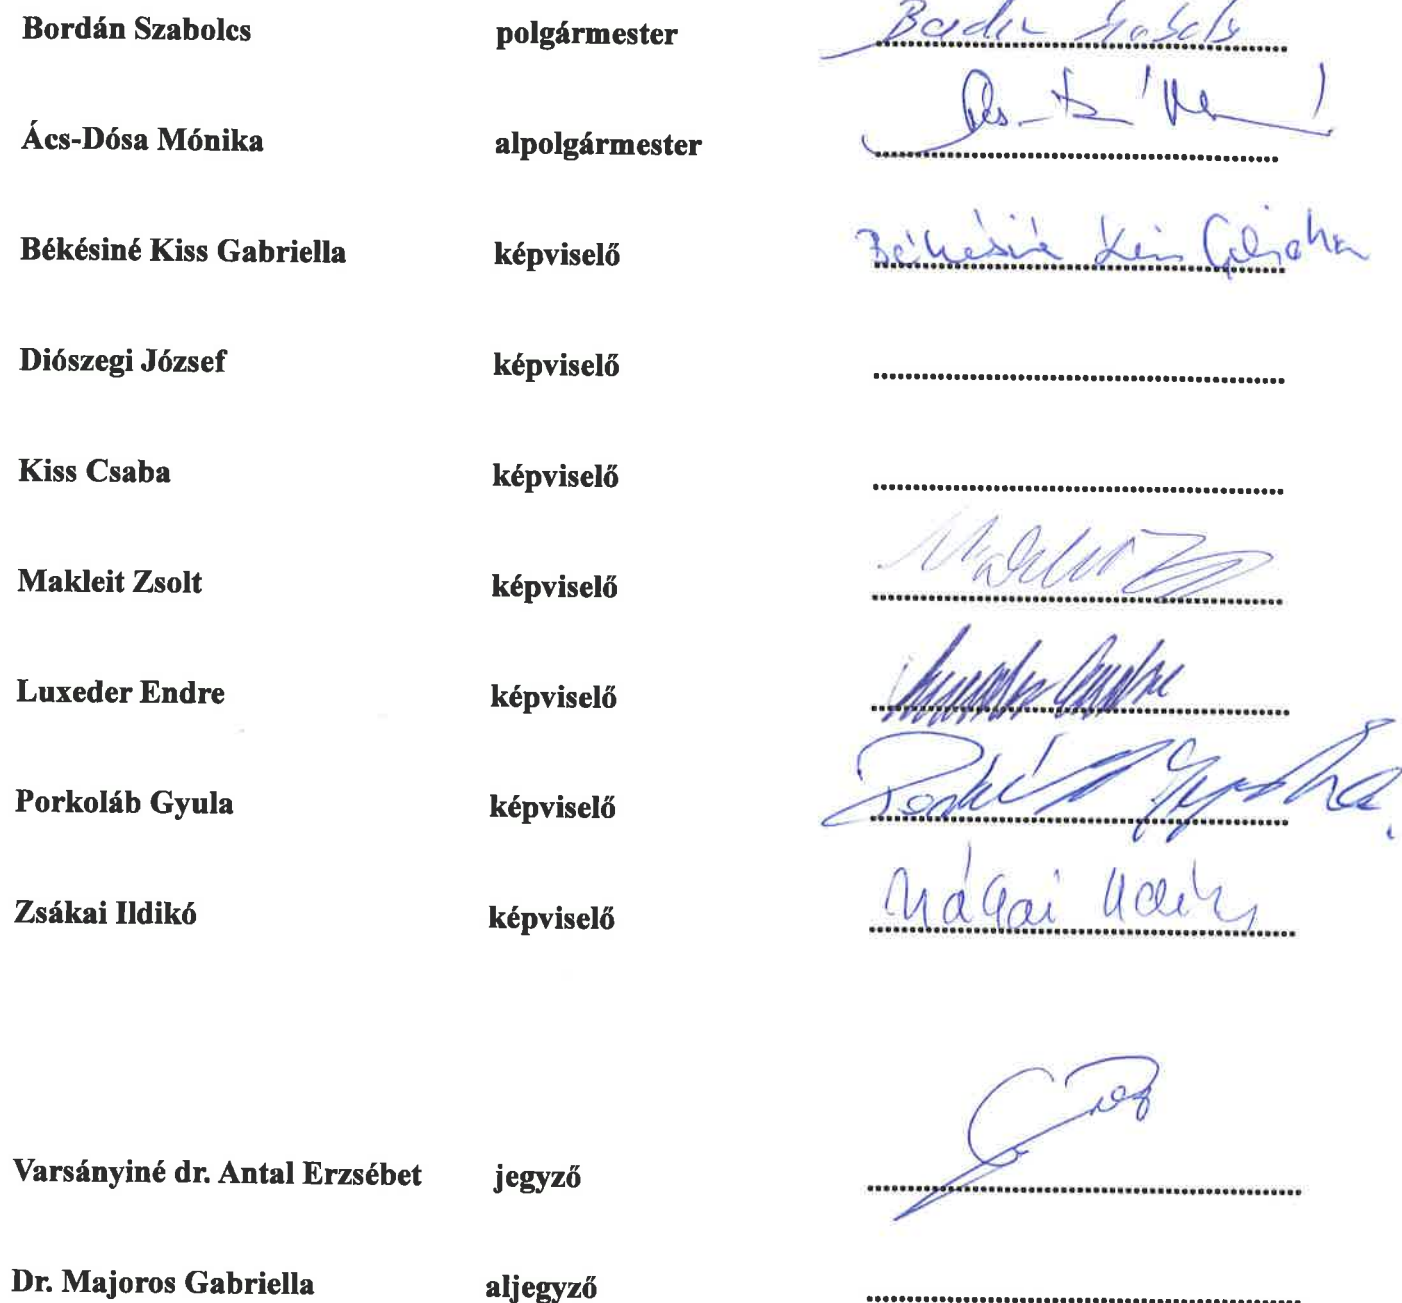 Bordán Szabolcs polgármester
Ács-Dósa Mónika alpolgármester
Békésiné Kiss Gabriella képviselő Békésiné Kiss Gabriella
Diószegi József képviselő
Kiss Csaba képviselő
Makleit Zsolt képviselő
Luxeder Endre képviselő
Porkoláb Gyula képviselő
Zsákai Ildikó képviselő
Varsányiné dr. Antal Erzsébet jegyző
Dr. Majoros Gabriella aljegyző